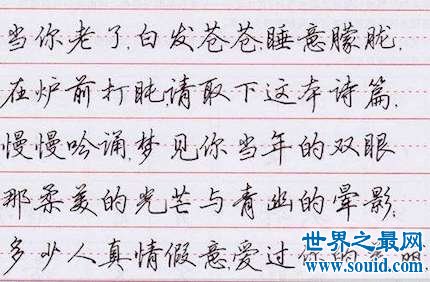 当你老了,白发苍苍,睡意朦胧,
在炉前打盹,请取下这本诗篇,
慢慢吟诵,梦见你当年的双眼
那柔美的光芒与青幽的晕影,
多少人真情假意,爱过你的
世界之最网
www.souid.com